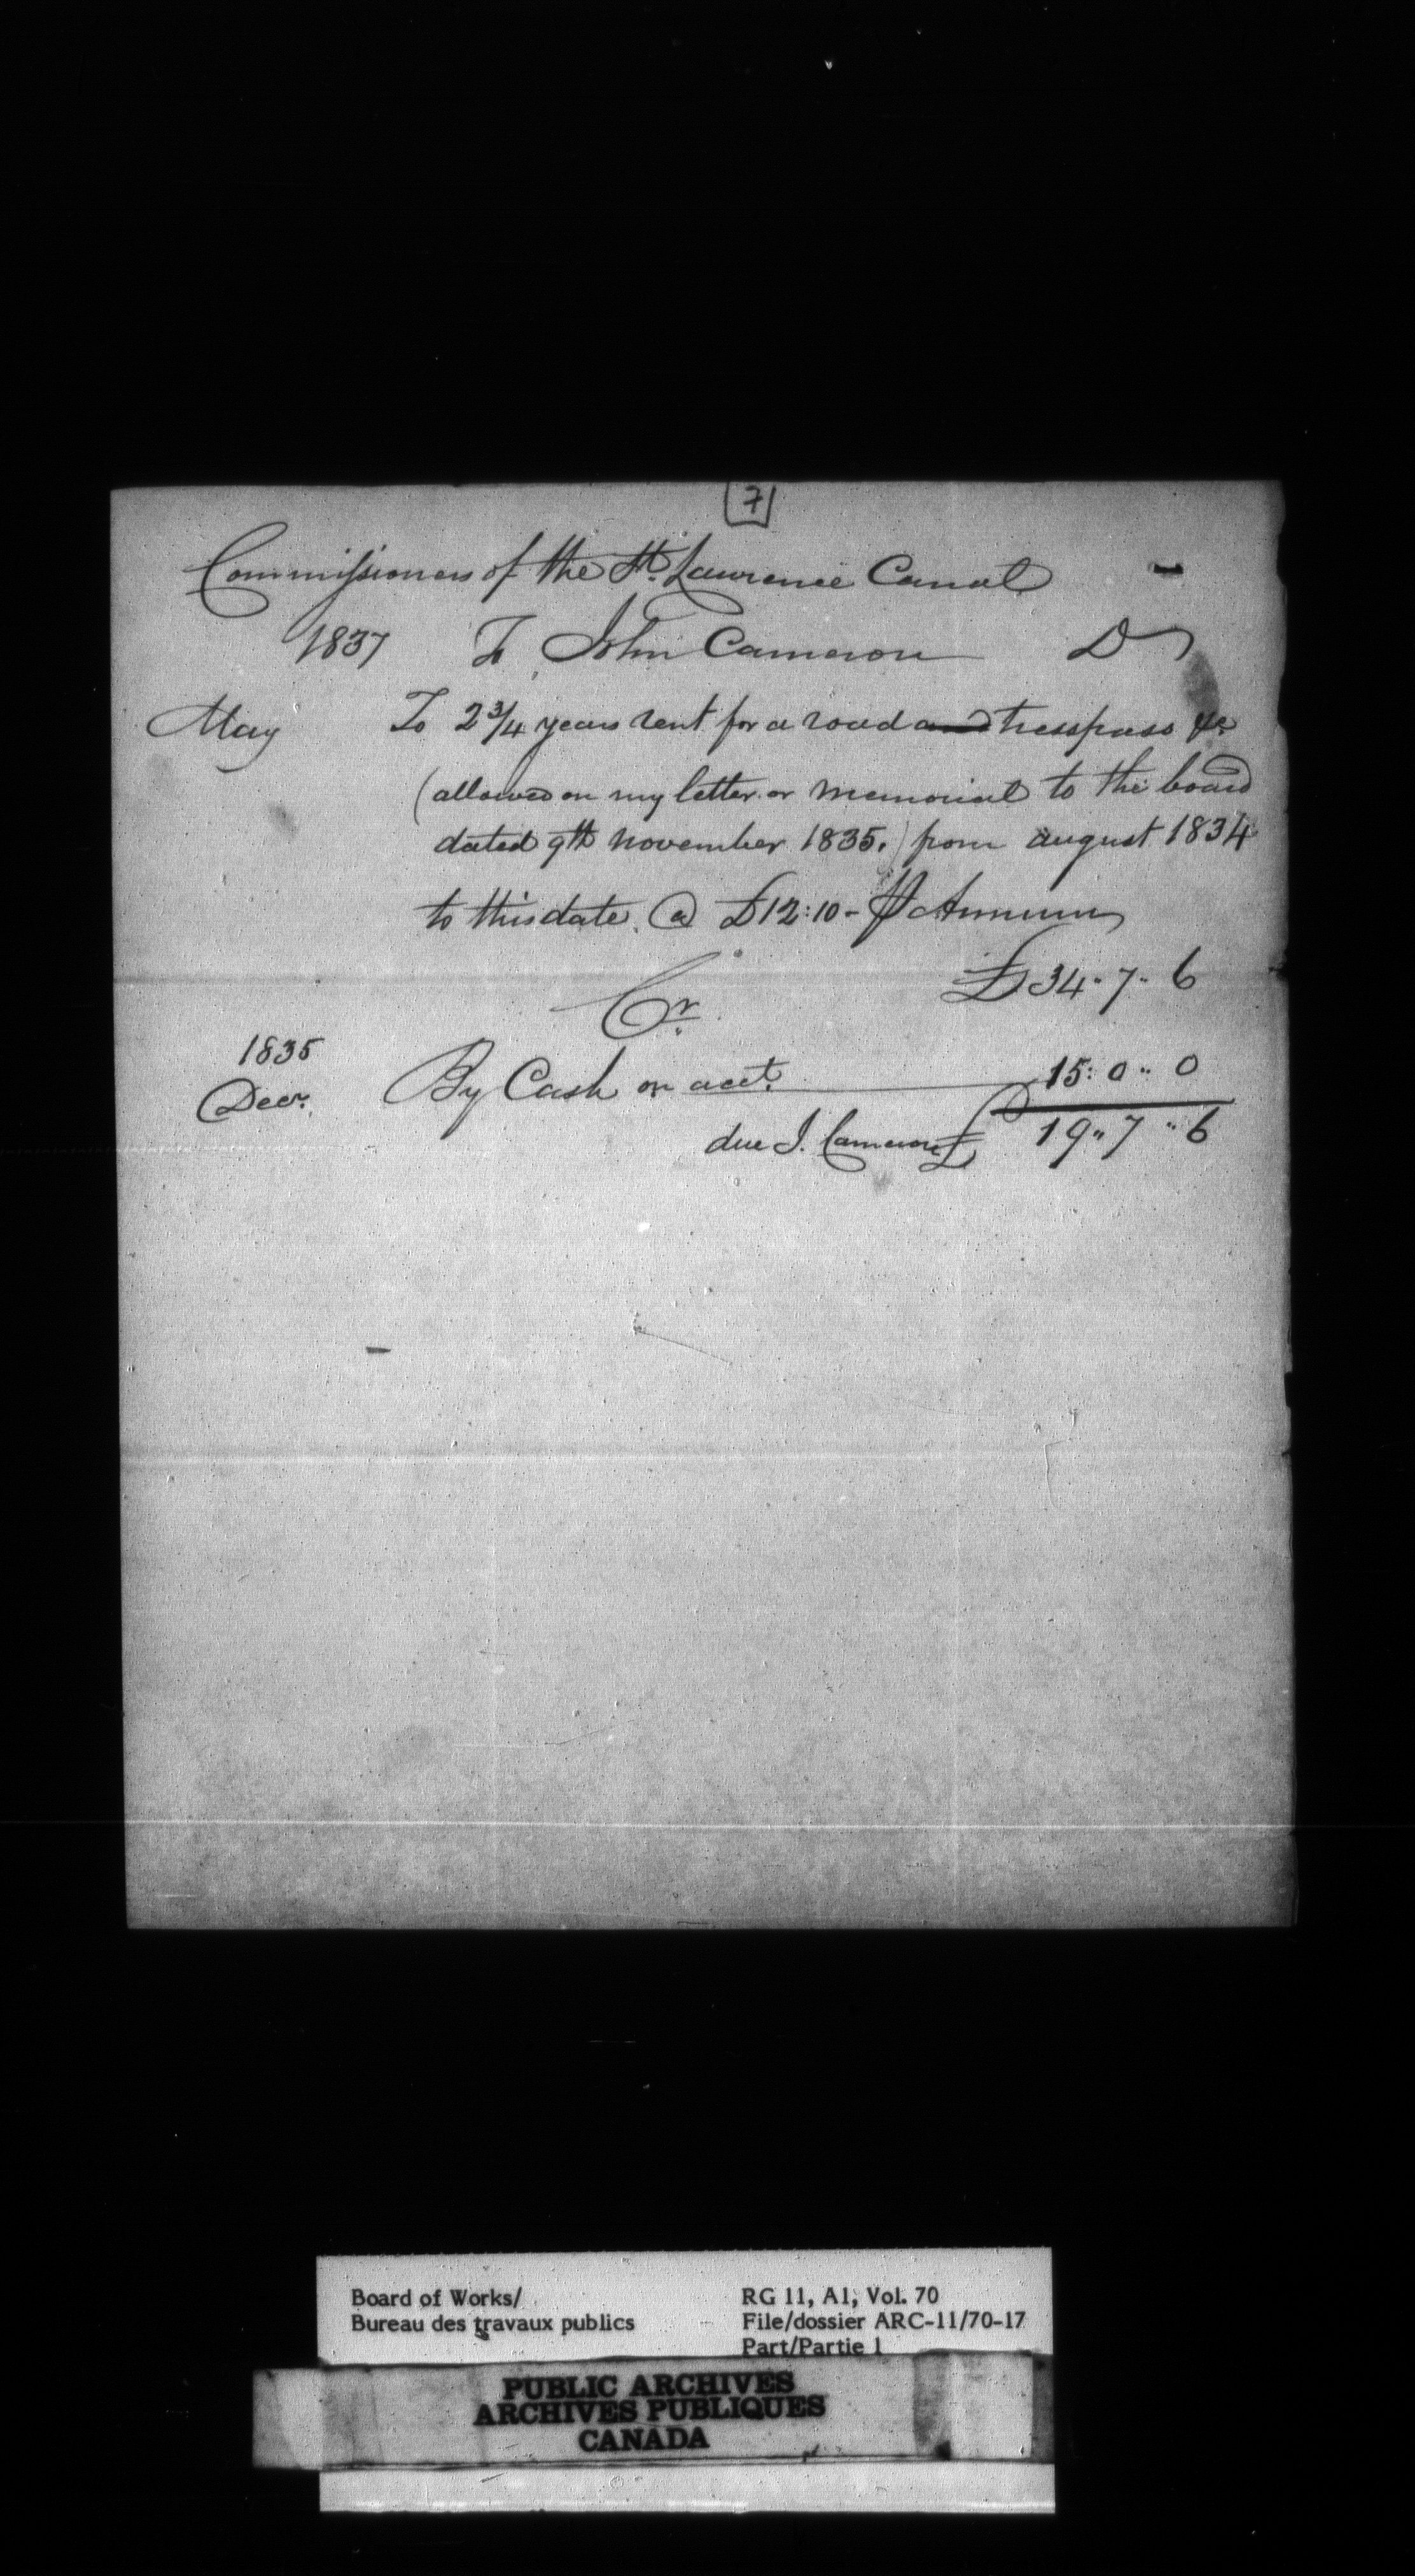 7
Commissioners of the St. Lawrence Canal
1837 To John Cameron Dr
May To 2 3/4 years rent for a road and tresspass &c
(allowed on my letter or memorial to the board
dated 9th november 1835.) from august 1834
to this date. @ £12:10- ⅌ Annum
£34"7"6
Cr.
1835
Decr. By Cash on acct. 15:0"0
due J. Cameron £ 19"7"6
Board of Works/
Bureau des travaux publics
RG 11, A1, Vol. 70
File/dossier ARC-11/70-17
Part/Partie 1
PUBLIC ARCHIVES
ARCHIVES PUBLIQUES
CANADA